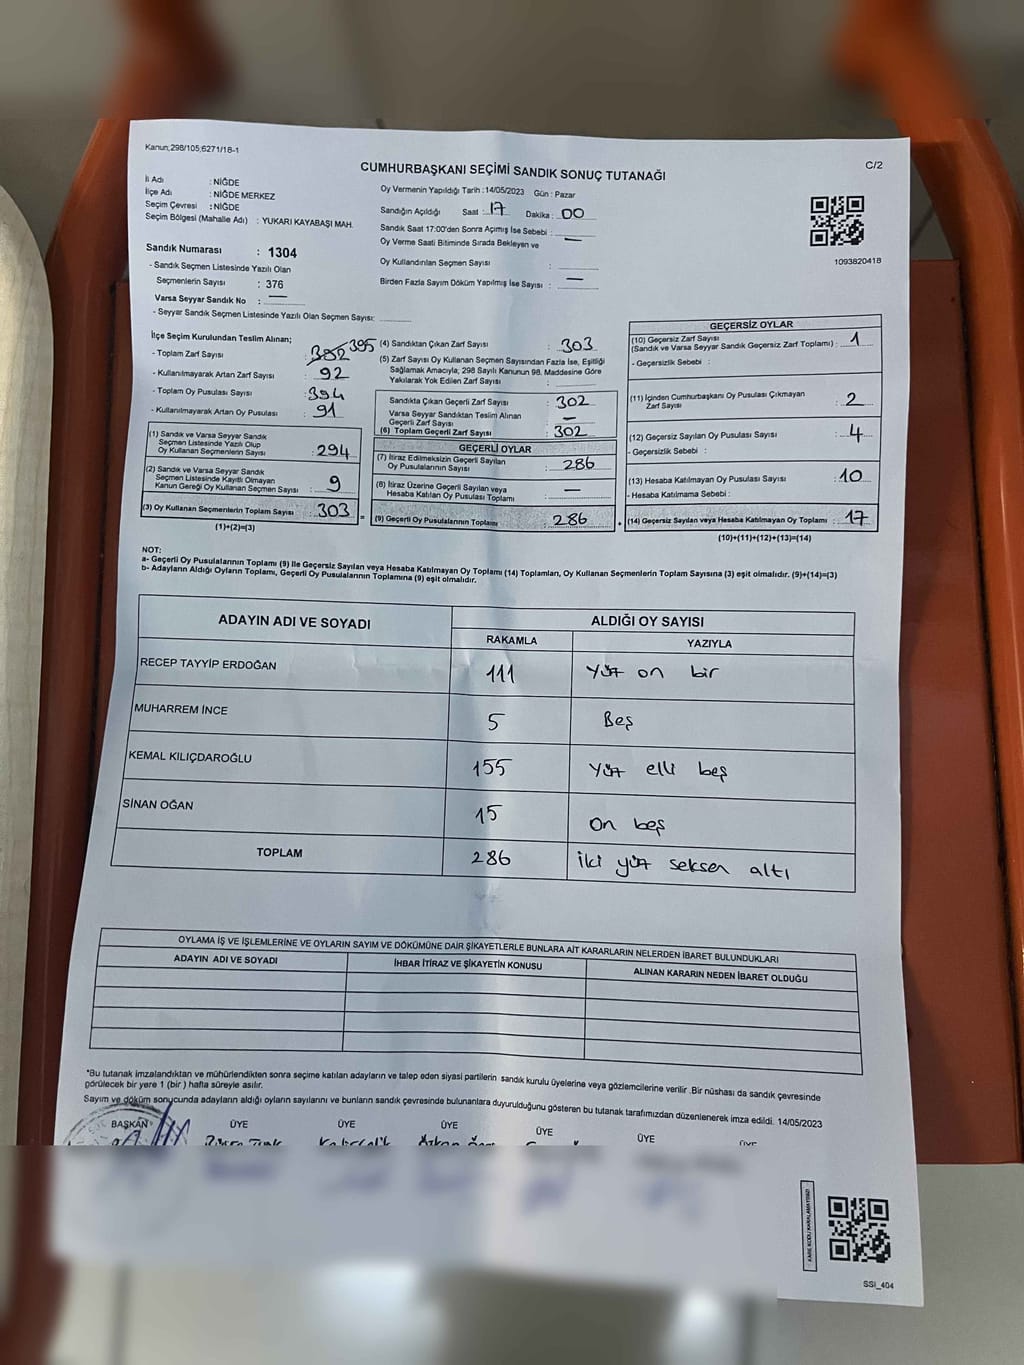 Kanun;298/105;6271/18-1
C/2
CUMHURBAŞKANI SEÇİMİ SANDIK SONUÇ TUTANAĞI
İl Adı : NİĞDE
İlçe Adı : NİĞDE MERKEZ
Seçim Çevresi : NİĞDE
Seçim Bölgesi (Mahalle Adı) : YUKARI KAYABAŞI MAH.
Sandık Numarası : 1304
- Sandık Seçmen Listesinde Yazılı Olan
Seçmenlerin Sayısı : 376
Varsa Seyyar Sandık No : —
- Seyyar Sandık Seçmen Listesinde Yazılı Olan Seçmen Sayısı:
Oy Vermenin Yapıldığı Tarih :14/05/2023 Gün : Pazar
Sandığın Açıldığı Saat : 17 Dakika : 00
Sandık Saat 17:00'den Sonra Açımış İse Sebebi :
Oy Verme Saati Bitiminde Sırada Bekleyen ve —
Oy Kullandırılan Seçmen Sayısı :
Birden Fazla Sayım Döküm Yapılmış İse Sayısı : —
1093820418
İlçe Seçim Kurulundan Teslim Alınan;
- Toplam Zarf Sayısı : 382 395
- Kullanılmayarak Artan Zarf Sayısı : 92
- Toplam Oy Pusulası Sayısı : 394
- Kullanılmayarak Artan Oy Pusulası : 91
(1) Sandık ve Varsa Seyyar Sandık
Seçmen Listesinde Yazılı Olup
Oy Kullanan Seçmenlerin Sayısı : 294
(2) Sandık ve Varsa Seyyar Sandık
Seçmen Listesinde Kayıtlı Olmayan
Kanun Gereği Oy Kullanan Seçmen Sayısı : 9
(3) Oy Kullanan Seçmenlerin Toplam Sayısı : 303
(1)+(2)=(3)
(4) Sandıktan Çıkan Zarf Sayısı : 303
(5) Zarf Sayısı Oy Kullanan Seçmen Sayısından Fazla İse, Eşitliği
Sağlamak Amacıyla; 298 Sayılı Kanunun 98. Maddesine Göre
Yakılarak Yok Edilen Zarf Sayısı :
Sandıkta Çıkan Geçerli Zarf Sayısı : 302
Varsa Seyyar Sandıktan Teslim Alınan
Geçerli Zarf Sayısı : —
(6) Toplam Geçerli Zarf Sayısı : 302
GEÇERLİ OYLAR
(7) İtiraz Edilmeksizin Geçerli Sayılan
Oy Pusulalarının Sayısı : 286
(8) İtiraz Üzerine Geçerli Sayılan veya
Hesaba Katılan Oy Pusulası Toplamı : —
(9) Geçerli Oy Pusulalarının Toplamı : 286
GEÇERSİZ OYLAR
(10) Geçersiz Zarf Sayısı
(Sandık ve Varsa Seyyar Sandık Geçersiz Zarf Toplamı) : 1
- Geçersizlik Sebebi :
(11) İçinden Cumhurbaşkanı Oy Pusulası Çıkmayan
Zarf Sayısı : 2
(12) Geçersiz Sayılan Oy Pusulası Sayısı : 4
- Geçersizlik Sebebi :
(13) Hesaba Katılmayan Oy Pusulası Sayısı : 10
- Hesaba Katılmama Sebebi :
(14) Geçersiz Sayılan veya Hesaba Katılmayan Oy Toplamı : 17
(10)+(11)+(12)+(13)=(14)
NOT:
a- Geçerli Oy Pusulalarının Toplamı (9) ile Geçersiz Sayılan veya Hesaba Katılmayan Oy Toplamı (14) Toplamları, Oy Kullanan Seçmenlerin Toplam Sayısına (3) eşit olmalıdır. (9)+(14)=(3)
b- Adayların Aldığı Oyların Toplamı, Geçerli Oy Pusulalarının Toplamına (9) eşit olmalıdır.
ADAYIN ADI VE SOYADI ALDIĞI OY SAYISI
RAKAMLA YAZIYLA
RECEP TAYYİP ERDOĞAN 111 yüz on bir
MUHARREM İNCE 5 Beş
KEMAL KILIÇDAROĞLU 155 yüz elli beş
SİNAN OĞAN 15 on beş
TOPLAM 286 iki yüz seksen altı
OYLAMA İŞ VE İŞLEMLERİNE VE OYLARIN SAYIM VE DÖKÜMÜNE DAİR ŞİKAYETLERLE BUNLARA AİT KARARLARIN NELERDEN İBARET BULUNDUKLARI
ADAYIN ADI VE SOYADI İHBAR İTİRAZ VE ŞİKAYETİN KONUSU ALINAN KARARIN NEDEN İBARET OLDUĞU
*Bu tutanak imzalandıktan ve mühürlendikten sonra seçime katılan adayların ve talep eden siyasi partilerin sandık kurulu üyelerine veya gözlemcilerine verilir .Bir nüshası da sandık çevresinde
görülecek bir yere 1 (bir ) hafta süreyle asılır.
Sayım ve döküm sonucunda adayların aldığı oyların sayılarını ve bunların sandık çevresinde bulunanlara duyurulduğunu gösteren bu tutanak tarafımızdan düzenlenerek imza edildi. 14/05/2023
BAŞKAN ÜYE ÜYE ÜYE ÜYE ÜYE ÜYE
SSI_404